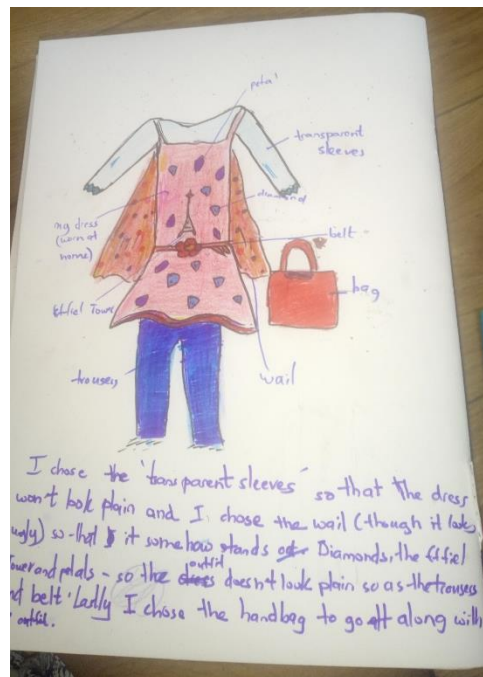 petal
transparent
sleeves
diamond
dress
(worn at
home)
belt
bag
Eifiel Tower
trousers
wail
I chose the "transparent sleeves" so that the dress
won't look plain and I chose the wail (though it looks
ugly) so that it somehow stands Diamonds, the Eifiel
Tower and petals - so the outfit doesn't look plain so as the trousers
and belt. Lastly I chose the handbag to go off along with
outfit.